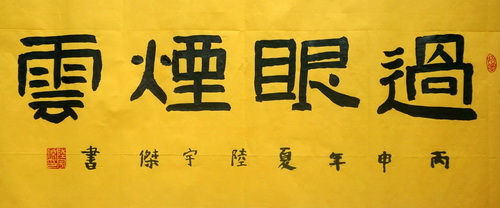 過眼煙雲
丙申年夏陸宇傑書